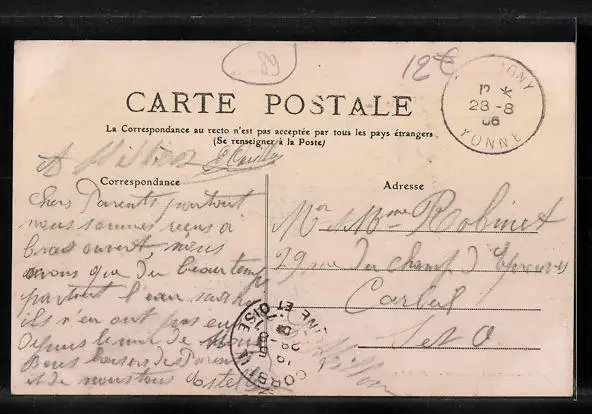 89
12€
IGNY
28-8
06
YONNE
CARTE POSTALE
La Correspondance au recto n'est pas acceptée par tous les pays étrangers
(Se renseigner à la Poste)
Correspondance
Chers Parents partout
nous sommes reçus a
bras ouvert, nous
avons que du beau temps
partout l'eau
ils n'en ont pas eu
Depuis le de
Bons baisers des Parents
et de nous tous
Adresse
Mr & Mme Robinet
29 rue du champ d'Epreuves
Corbeil
S et O
CORBEIL
SEINE ET OISE